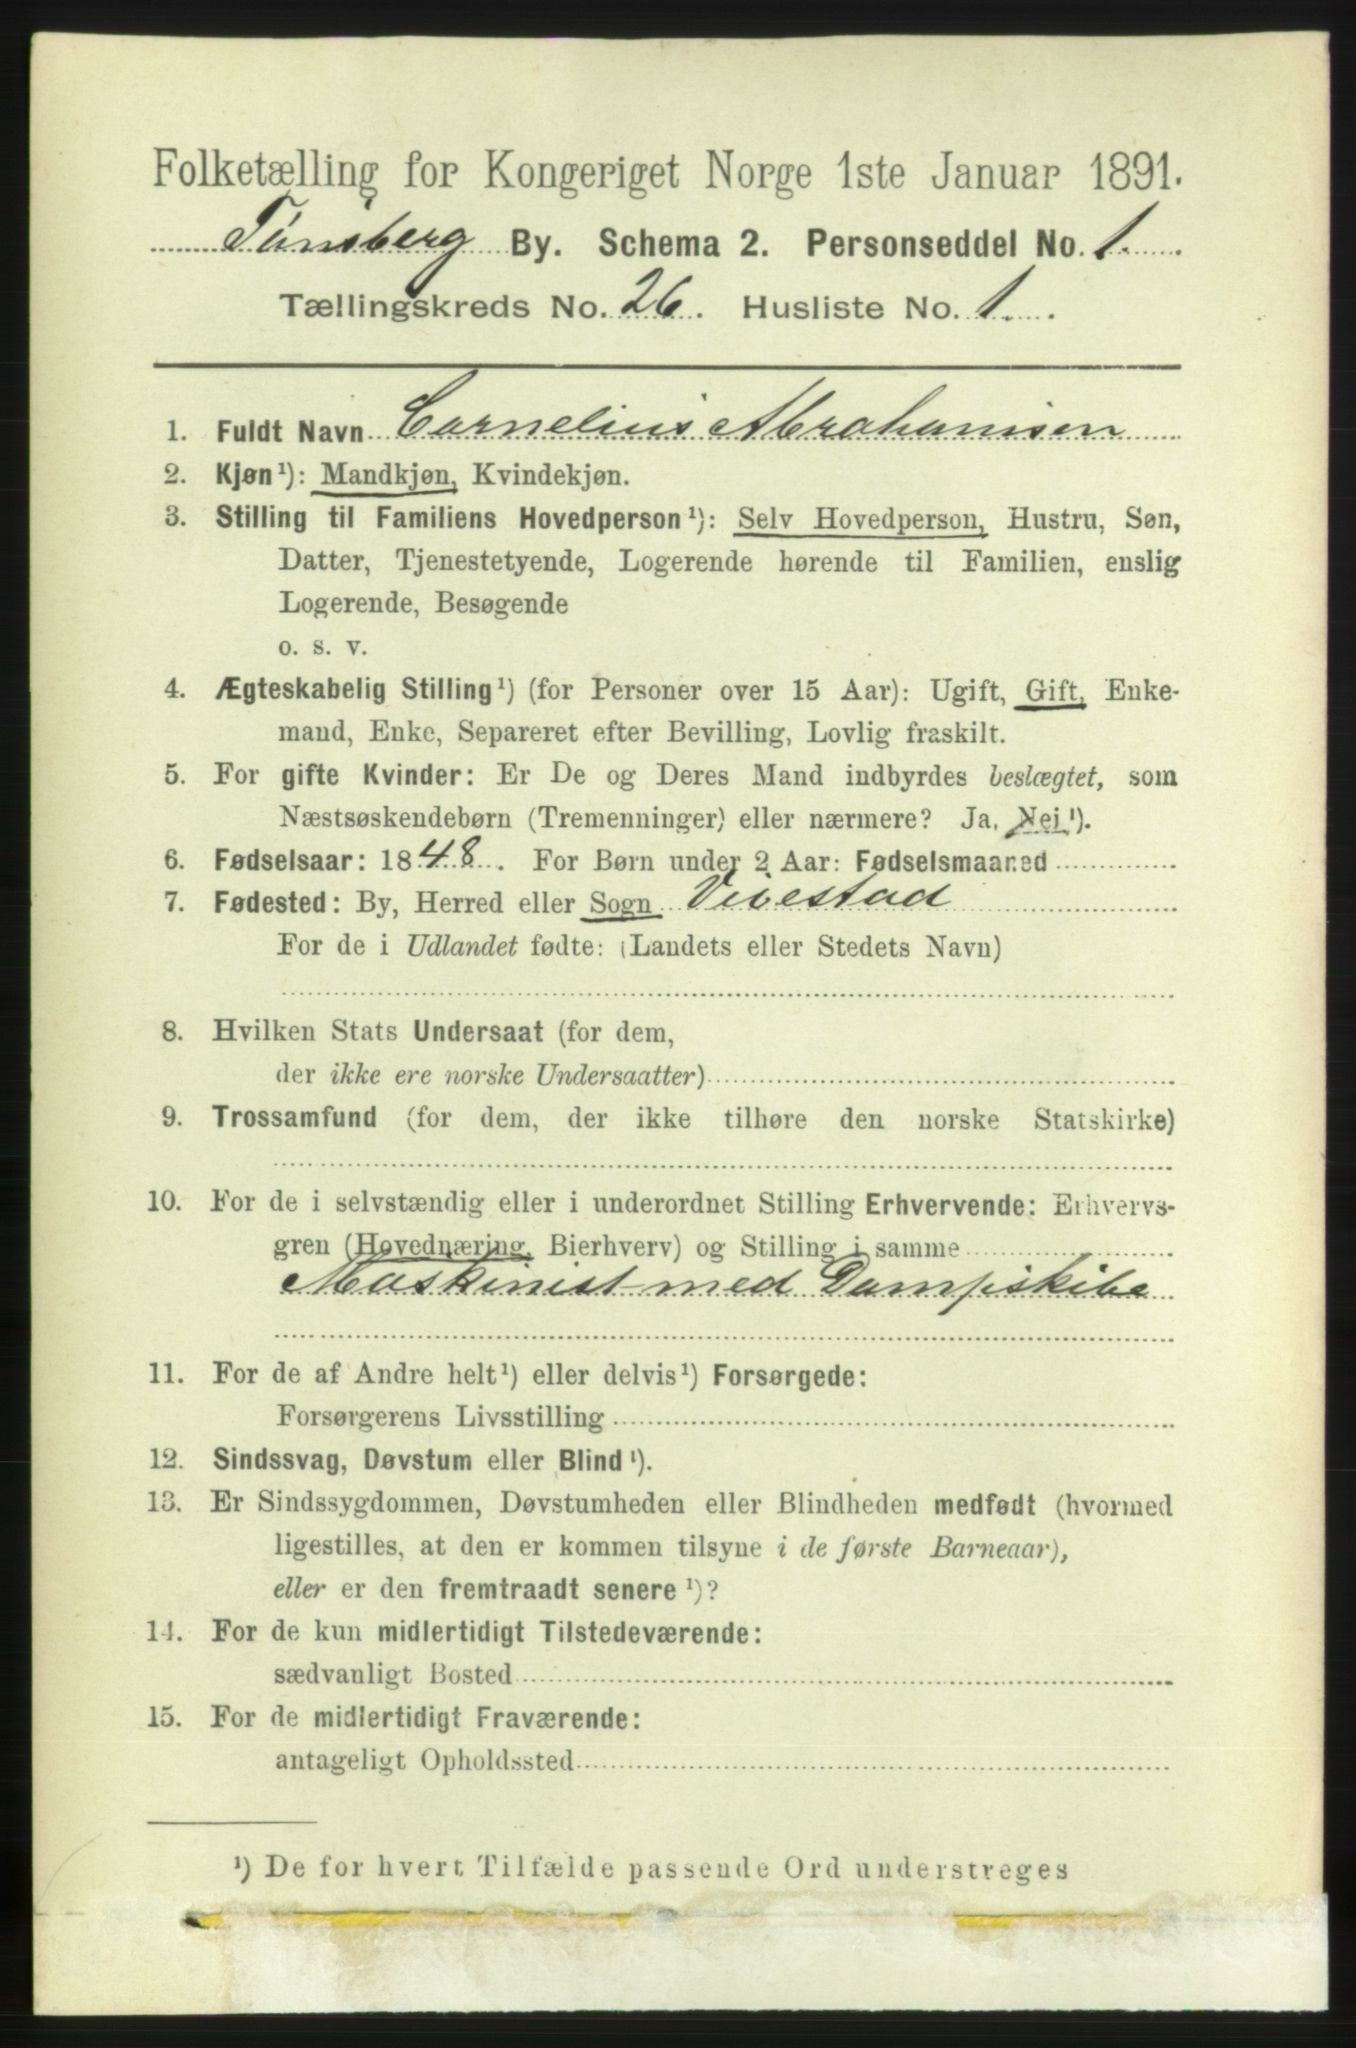 Folketælling for Kongeriget Norge 1ste Januar 1891.
Tønsberg By. Schema 2. Personseddel No. 1.
Tællingskreds No. 26. Husliste No. 1.
1. Fuldt Navn Cornelius Abrahamsen
2. Kjøn¹): Mandkjøn, Kvindekjøn.
3. Stilling til Familiens Hovedperson¹): Selv Hovedperson, Hustru, Søn,
Datter, Tjenestetyende, Logerende hørende til Familien, enslig
Logerende, Besøgende
o. s. v.
4. Ægteskabelig Stilling¹) (for Personer over 15 Aar): Ugift, Gift, Enke-
mand, Enke, Separeret efter Bevilling, Lovlig fraskilt.
5. For gifte Kvinder: Er De og Deres Mand indbyrdes beslægtet, som
Næstsøskendebørn (Tremenninger) eller nærmere? Ja, Nei¹).
6. Fødselsaar: 1848. For Børn under 2 Aar: Fødselsmaaned
7. Fødested: By, Herred eller Sogn Vivestad
For de i Udlandet fødte: (Landets eller Stedets Navn)
8. Hvilken Stats Undersaat (for dem,
der ikke ere norske Undersaatter)
9. Trossamfund (for dem, der ikke tilhøre den norske Statskirke)
10. For de i selvstændig eller i underordnet Stilling Erhvervende: Erhvervs-
gren (Hovednæring, Bierhverv) og Stilling i samme
Maskinist med Dampskibe
11. For de af Andre helt¹) eller delvis¹) Forsørgede:
Forsørgerens Livsstilling
12. Sindssvag, Døvstum eller Blind¹).
13. Er Sindssygdommen, Døvstumheden eller Blindheden medfødt (hvormed
ligestilles, at den er kommen tilsyne i de første Barneaar),
eller er den fremtraadt senere¹)?
14. For de kun midlertidigt Tilstedeværende:
sædvanligt Bosted
15. For de midlertidigt Fraværende:
antageligt Opholdssted
¹) De for hvert Tilfælde passende Ord understreges